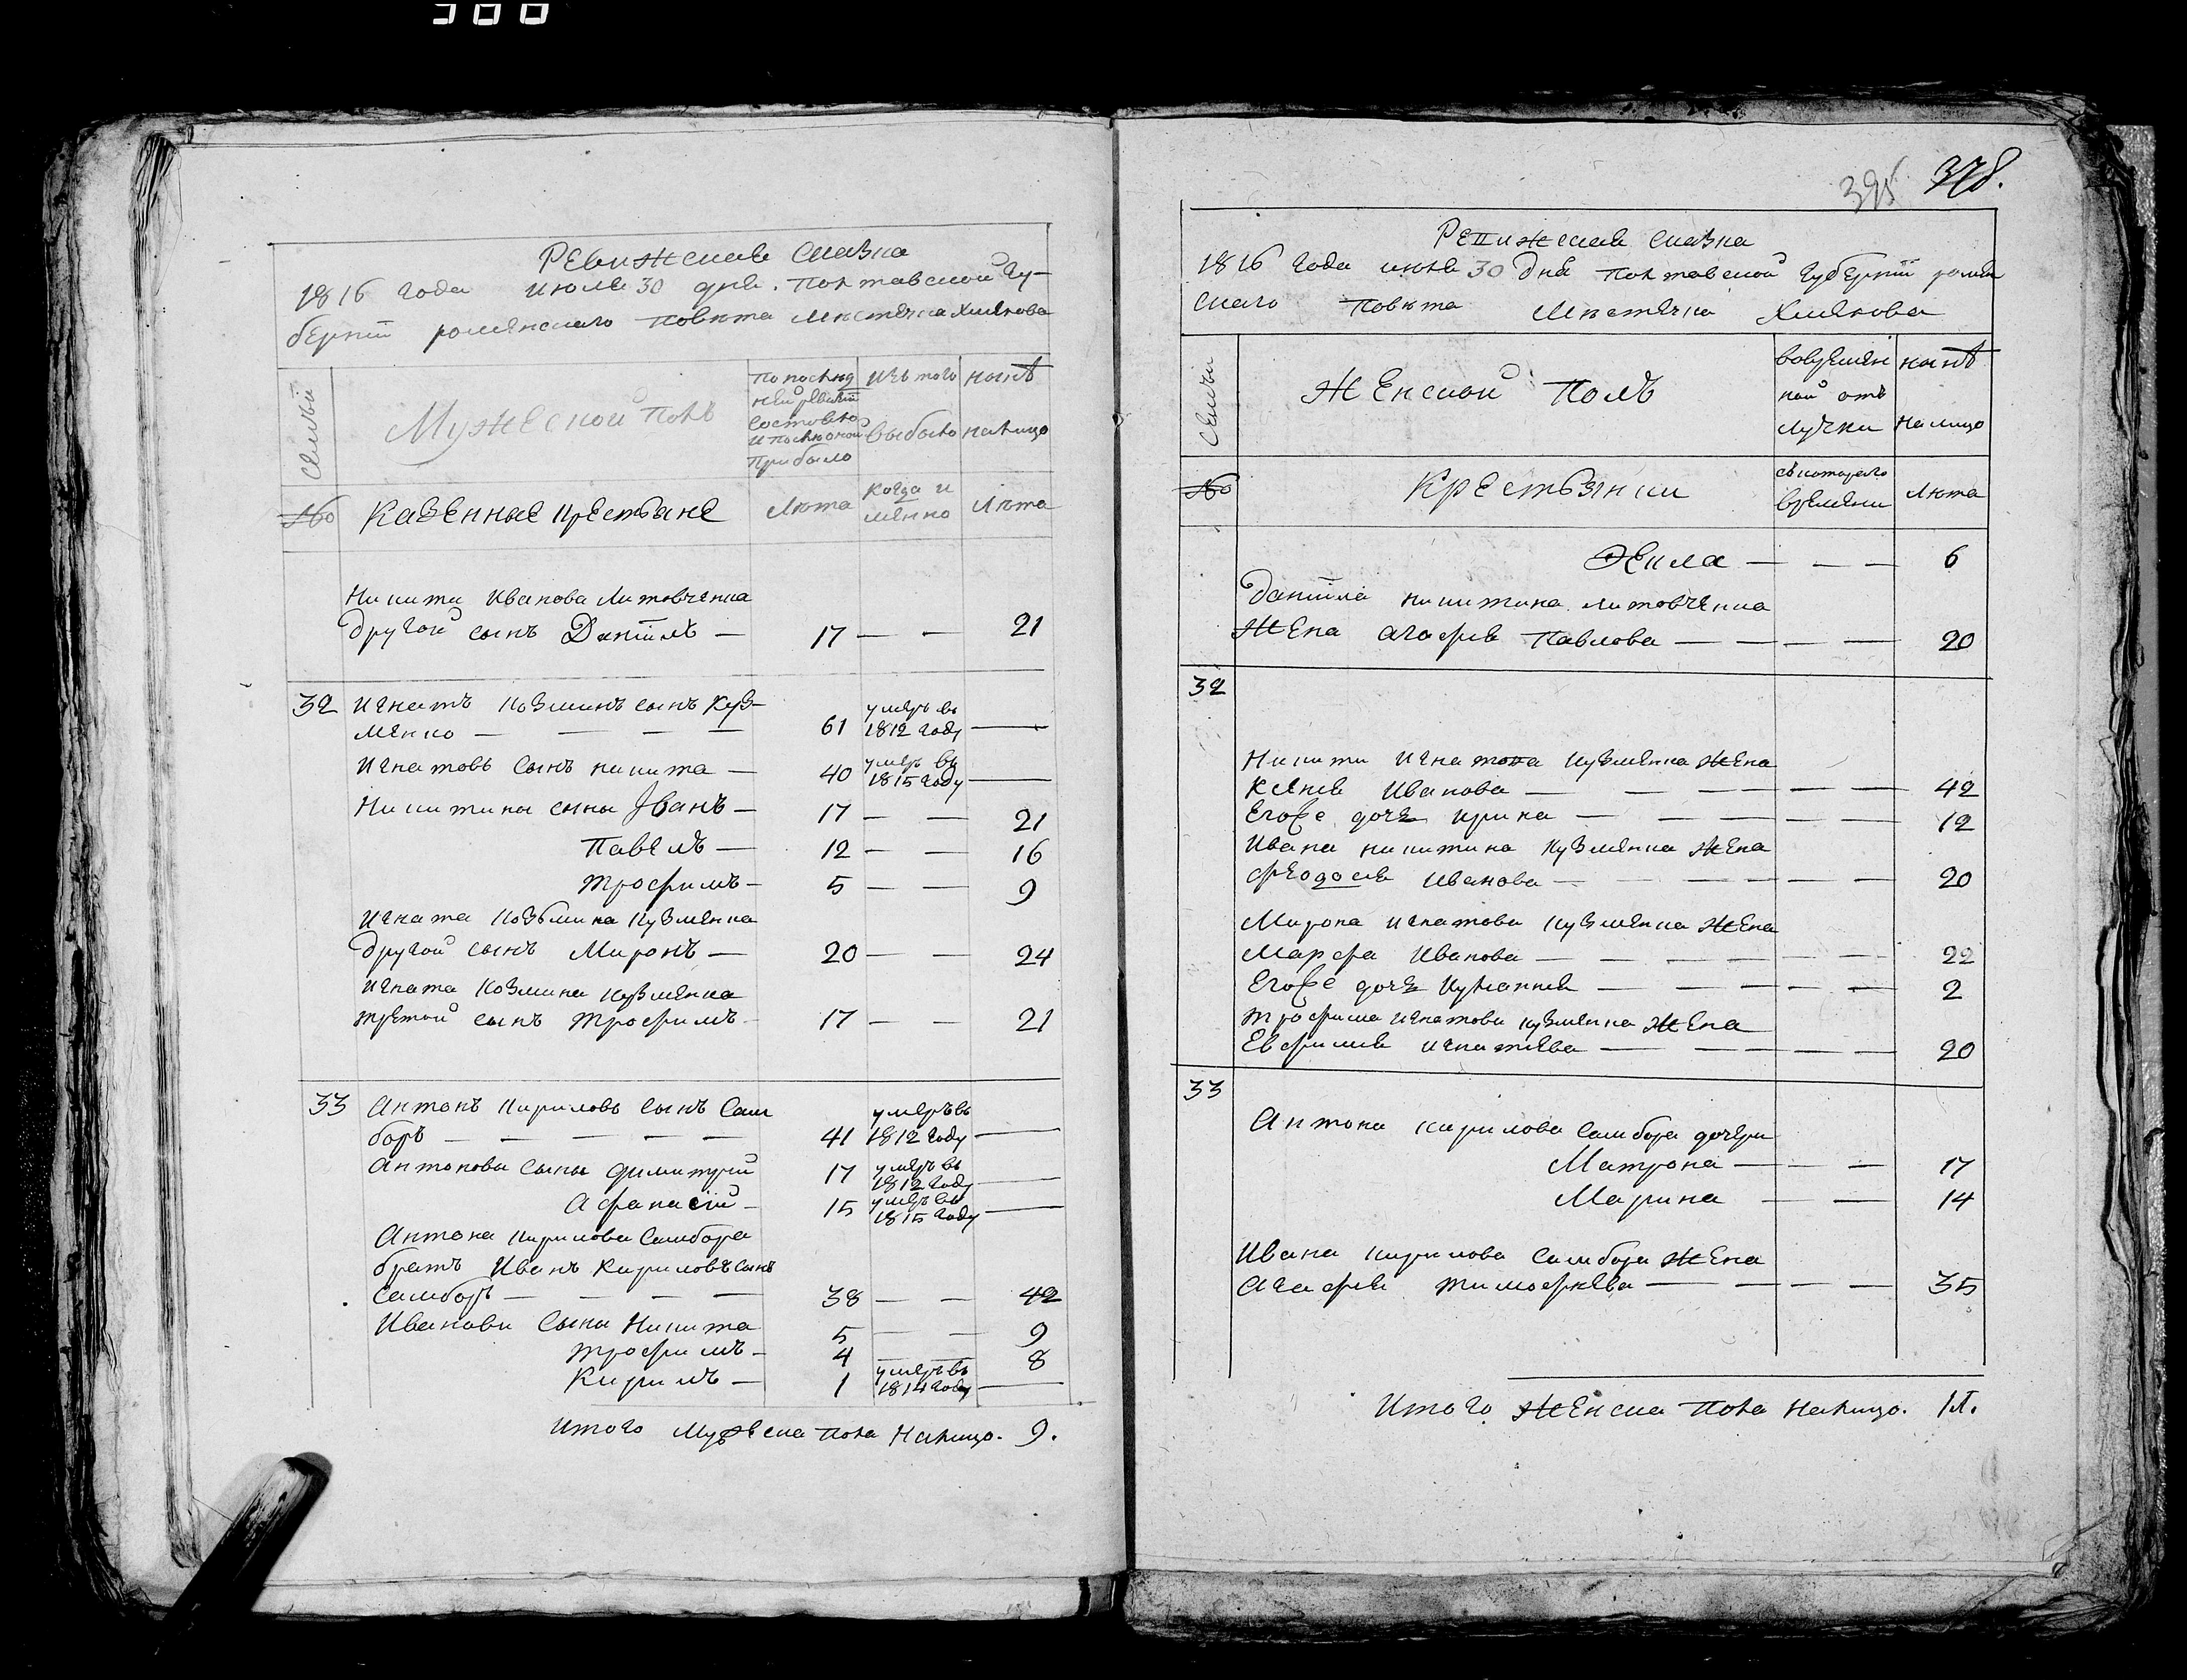 388
Ревижская Сказка
1816 года июля 30 дня. Полтавской Гу-
берніи роменского Повѣта Мѣстечка Хмѣлова
Семьи
Мужеской полъ
По послѣд
ней ревизіи
состояло
и послѣ оной
прибыло
Изъ того
выбыло
нынѣ
налицо
№
Казенные крестьяне
Лѣта
Когда и
менно
Лѣта
Никиты Иванова Литовченка
другой сынъ Даніилъ — 17 — — 21
32 Игнатъ Козминъ сынъ Куз-
менко — — — — 61 умеръ въ 1812 году —
Игнатовъ сынъ никита — 40 умеръ въ 1815 году —
Никитины сыны Іванъ — 17 — — 21
Павелъ — 12 — — 16
Трофимъ — 5 — — 9
Игната Козьмина Кузменка
другой сынъ Миронъ — 20 — — 24
Игната Козмина Кузменка
третой сынъ Трофимъ 17 — — 21
33 Антонъ Кириловъ сынъ Сам
боръ — — — — — 41 умеръ въ 1812 году —
Антоновы сыны димитрій 17 умеръ въ 1812 году —
Афанасій — 15 умеръ въ 1815 году —
Антона Кирилова Самбора
братъ Иванъ Кириловъ сынъ
Самборъ — — — — 38 — — 42
Ивановы сыны Никита 5 — — 9
Трофимъ — 4 — — 8
Кирилъ — 1 умеръ въ 1814 году —
Итого Мужеска пола налицо. 9.
395 378.
Ревижская сказка
1816 года июля 30 дня Полтавской Губерніи ромен
ского Повѣта Мѣстечка Хмѣлова
Семьи
Женской Полъ
вовремен
ной отъ
лучки
нынѣ
налицо
№
Крестьянки
съ которого
времени
Лѣта
— — — 6
Даніила никитина литовченка
Жена агафія Павлова — — — — 20
32
Никиты Игнатова Кузменка Жена
Ксенія Иванова — — — — — — 42
Его же дочь ирина — — — — — 12
Ивана никитина Кузменка Жена
феодосія Иванова — — — — — 20
Мирона игнатова Кузменка Жена
Марфа Иванова — — — — — — 22
Его же дочь — — — — — 2
Трофима игнатова кузменка Жена
Евфимія игнатьева — — — — — 20
33
Антона кирилова Самбора дочери
Матрона — — — 17
Марина — — 14
Ивана кирилова Самбора Жена
Агафія тимофѣева — — — — 35
Итого Женска Пола Налицо. 11.